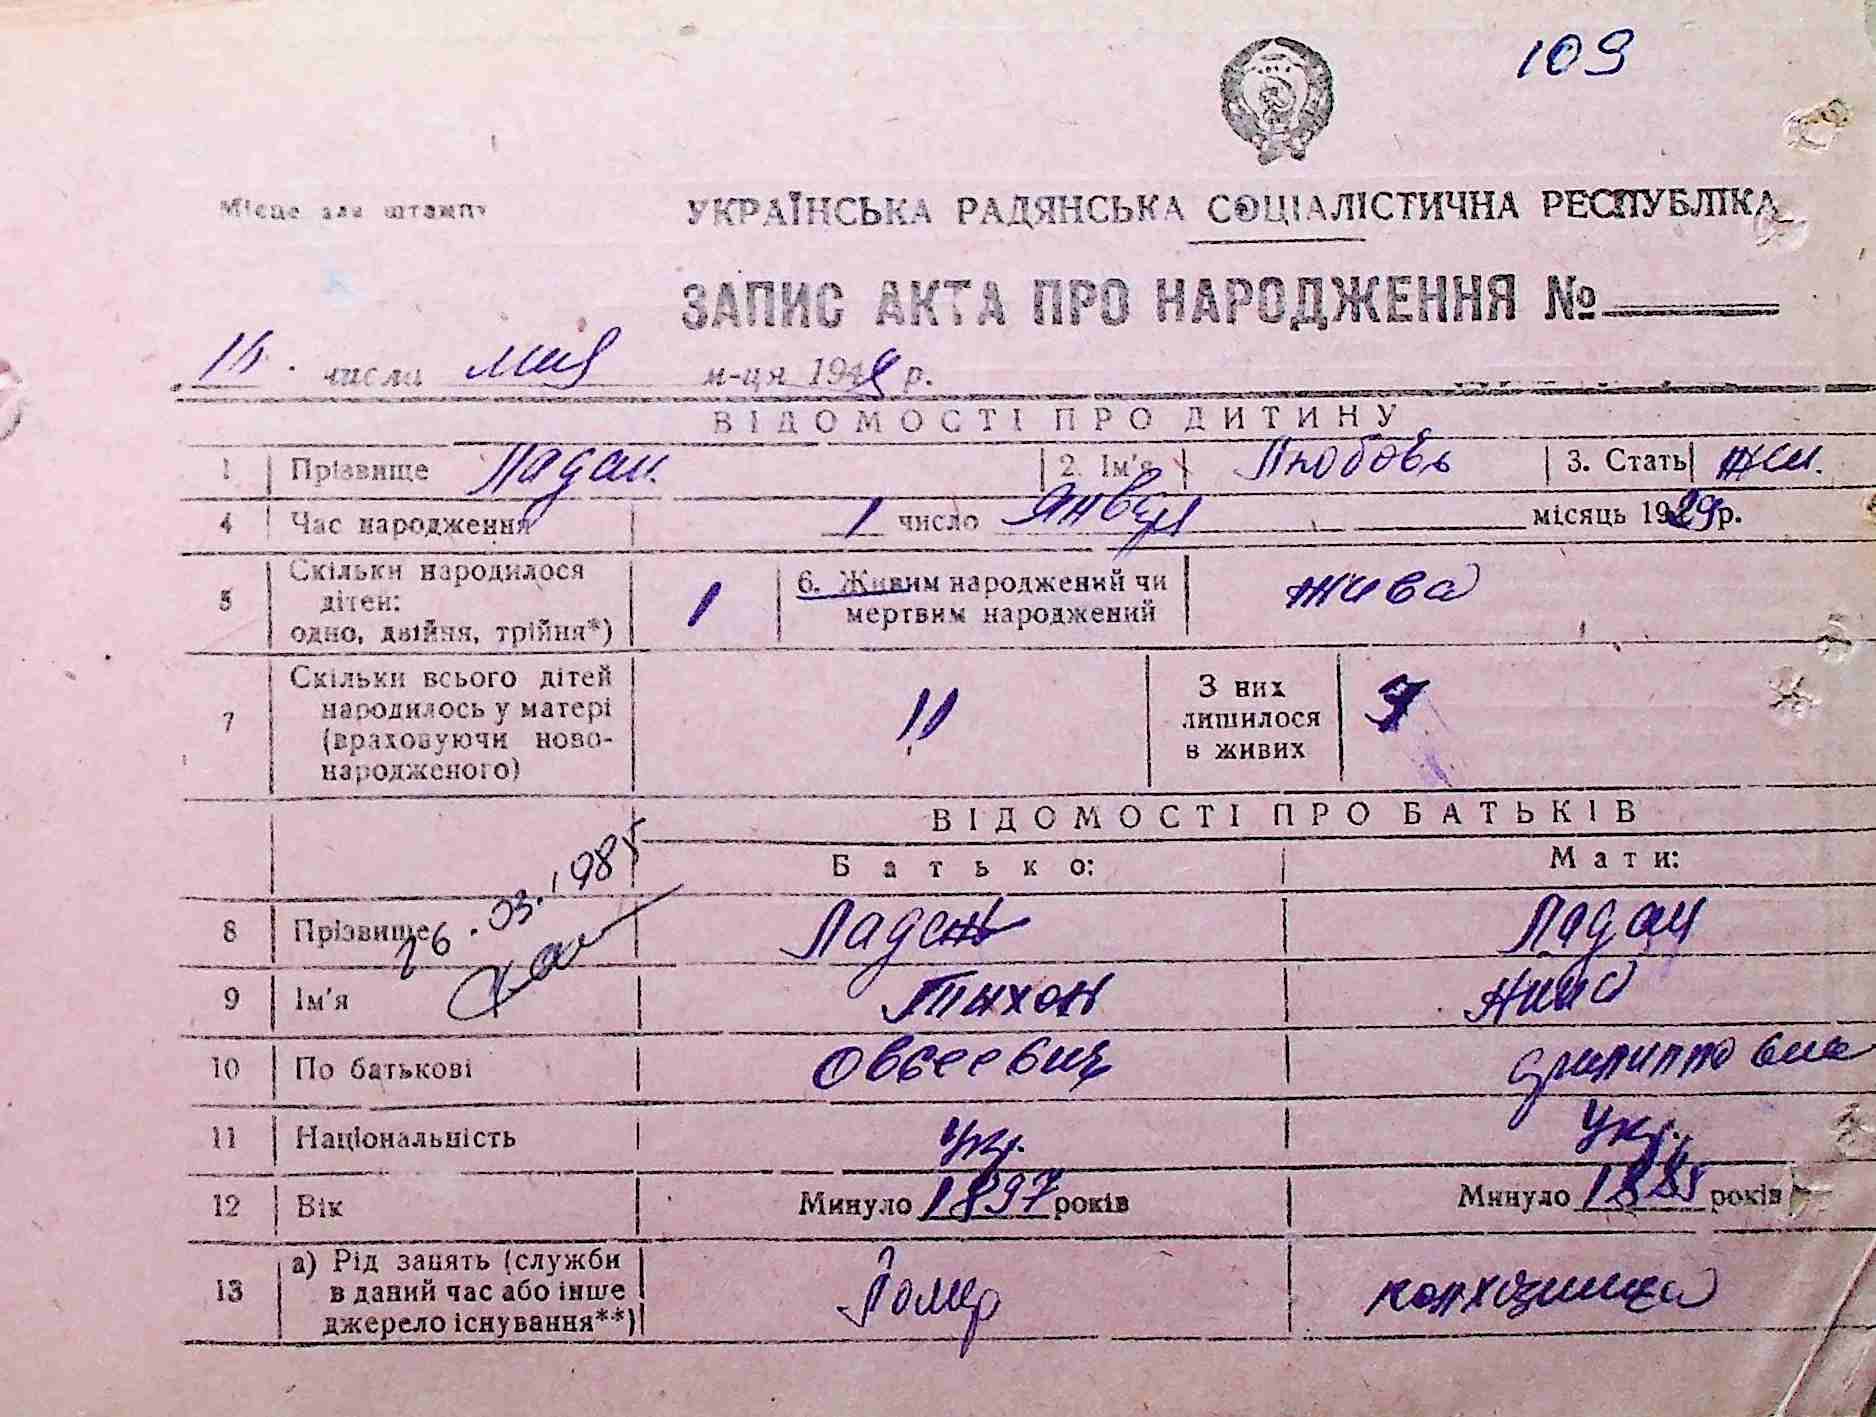 109
Місце для штампу
УКРАЇНСЬКА РАДЯНСЬКА СОЦІАЛІСТИЧНА РЕСПУБЛІКА
ЗАПИС АКТА ПРО НАРОДЖЕННЯ №
16. числа мая м-ця 194 р.
ВІДОМОСТІ ПРО ДИТИНУ
1 Прізвище Ладан 2. Ім'я Любовь 3. Стать жін.
4 Час народження 1 число Января місяць 1929 р.
5 Скільки народилося дітей: одно, двійня, трійня*) 1 6. Живим народжений чи мертвим народжений жива
7 Скільки всього дітей народилось у матері (враховуючи новонародженого) 11 З них лишилося в живих
ВІДОМОСТІ ПРО БАТЬКІВ
Батько: Мати:
26.03.1985
8 Прізвище Ладан Ладан
9 Ім'я Тыхон
10 По батькові Овсеевич Филипповна
11 Національність Укр. Укр.
12 Вік Минуло 1897 років Минуло 1885 років
13 а) Рід занять (служби в даний час або інше джерело існування**) Помер колхозница